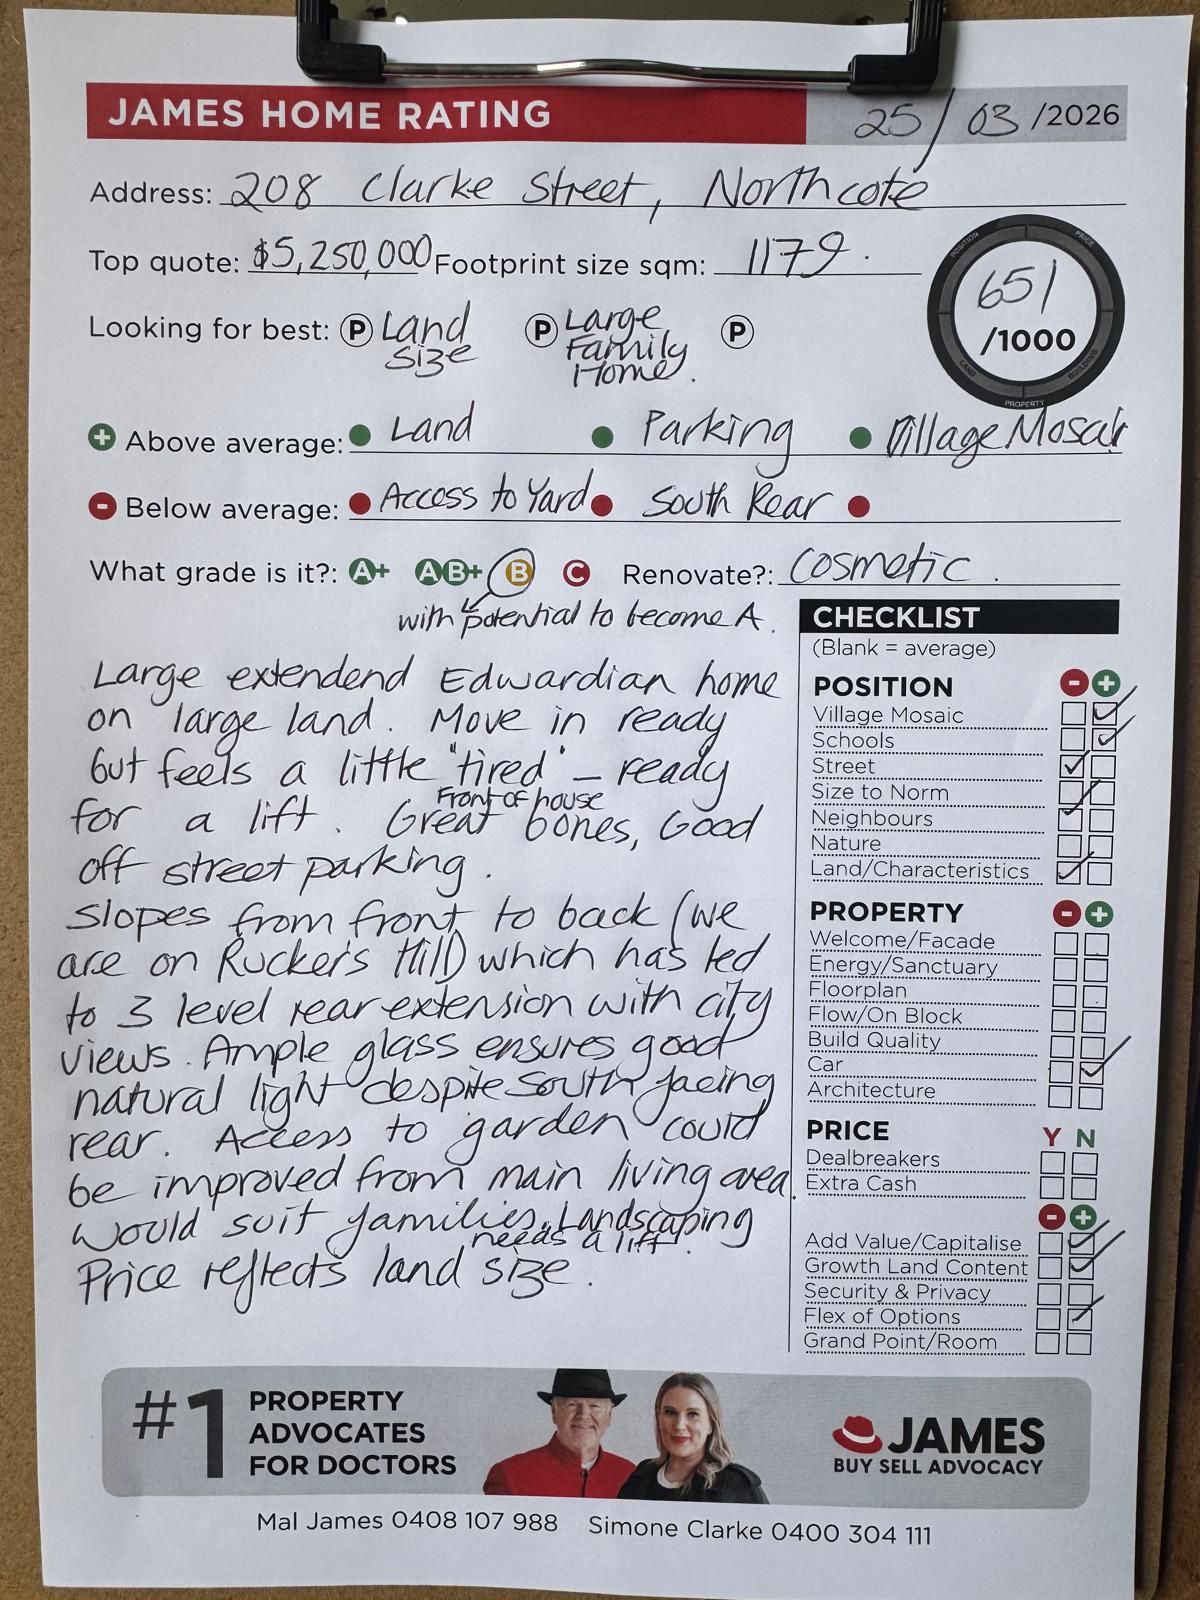 JAMES HOME RATING 25/03/2026
Address: 208 Clarke Street, Northcote
Top quote: $5,250,000 Footprint size sqm: 1179.
651
/1000
POSITION PRICE LAND BUILDING PROPERTY
Looking for best: P Land Size P Large Family Home. P
+ Above average: Land Parking Village Mosaic
- Below average: Access to Yard South Rear
What grade is it?: A+ A B+ B C Renovate?: Cosmetic.
with potential to become A.
Large extendend Edwardian home
on large land. Move in ready
but feels a little "tired" – ready
for a lift. Great Front of house bones, Good
off street parking.
Slopes from front to back (we
are on Rucker's Hill) which has led
to 3 level rear extension with city
views. Ample glass ensures good
natural light despite South facing
rear. Access to garden could
be improved from main living area.
Would suit families. Landscaping
needs a lift.
Price reflects land size.
CHECKLIST
(Blank = average)
POSITION - +
Village Mosaic
Schools
Street
Size to Norm
Neighbours
Nature
Land/Characteristics
PROPERTY - +
Welcome/Facade
Energy/Sanctuary
Floorplan
Flow/On Block
Build Quality
Car
Architecture
PRICE Y N
Dealbreakers
Extra Cash
- +
Add Value/Capitalise
Growth Land Content
Security & Privacy
Flex of Options
Grand Point/Room
#1 PROPERTY
ADVOCATES
FOR DOCTORS
JAMES
BUY SELL ADVOCACY
Mal James 0408 107 988 Simone Clarke 0400 304 111